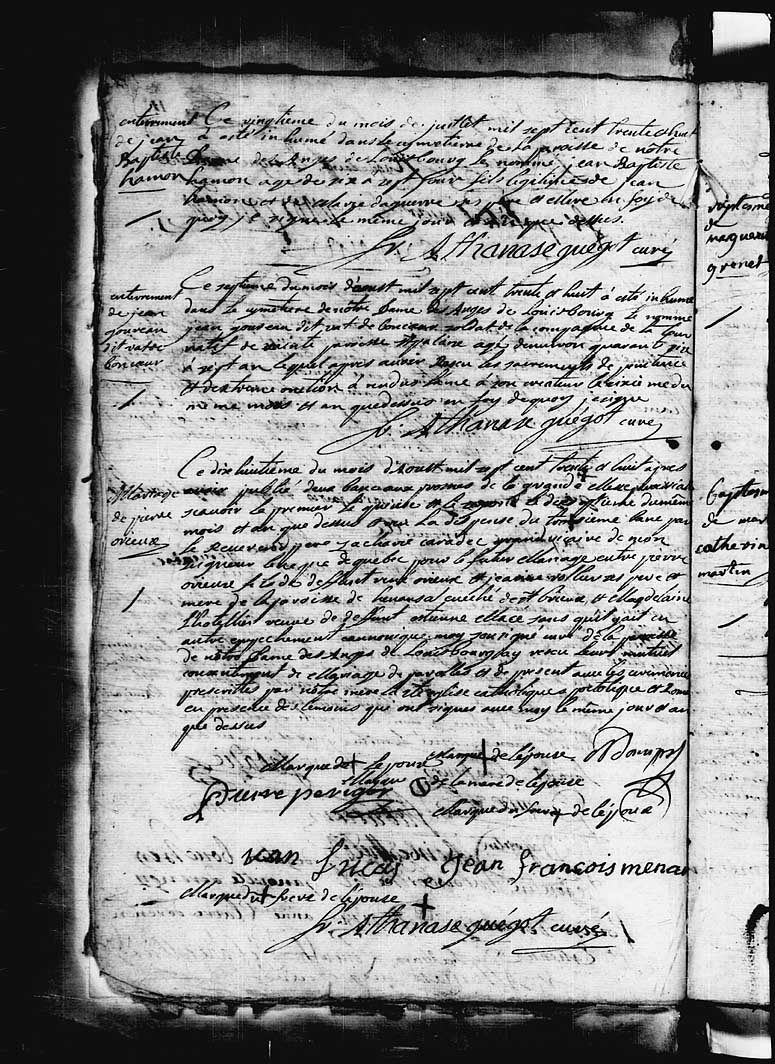 enterrement
de jean
Baptiste
hamon
Ce vingtieme du mois de juillet mil sept cent trente et huit
à esté inhumé dans le cymetierre de la paroisse de notre
Dame des Anges de Louisbourg le nommé jean Baptiste
hamon agé de dix a sept jours fils legitime de jean
hamon et de marie daguerre ses pere et mere en foy de
quoy j'ai signé le même jour et an que dessus.
fr. Athanase guégot curé
enterrement
de jean
gouveau
dit vat de
boncœur
Ce septieme du mois d'aoust mil sept cent trente et huit à esté inhumé
dans le cymetiere de notre Dame des Anges de Louisbourg le nommé
jean gouveau dit vat de boncœur soldat de la compagnie de
natif de paroisse St hilaire agé d'environ quarante six
a sept an lequel apres avoir Receu les sacrements de penitence
et d'extreme onction à rendu l'ame a son createur le sixieme du
même mois et an que dessus en foy de quoy j'ai signé
fr. Athanase guégot curé
Mariage
de pierre
orieux
Ce dix huitieme du mois d'Aoust mil sept cent trente et huit apres
avoir publié deux bans aux prosnes de la grande Messe
scavoir le premier le quinze et le second le dix septieme du même
mois et an que dessus et veu la dispense du troisieme bane par
le Reverend pere zacharie caradec grand vicaire de mon
seigneur l'eveque de quebec pour le futur Mariage entre pierre
orieux fils de deffunt orieux et jeanne ses pere et
mere de la paroisse de henansal eveché de St brieux, et Magdelaine
l'hotellier veuve de deffunt etienne Mace sans qu'il y ait eu
autre empechement cannonique. moy soussigné curé de la paroisse
de notre Dame des Anges de Louisbourg j'ay receu leurs mutuel
consentement de Mariage de parolles et de present avec les ceremonies
prescrittes par notre mere la Ste eglise catholique apostolique et Rom
en presence des temoins qui ont signés avec moy le même jour et an
que dessus
Marque de + lepoux Marque + de lepouse
Marque de la mere de lepouse
Pierre perigor
Marque du frere + de lepoux
jean lucas Jean françois menar
Marque du + frere de lepouse
+
fr. Athanase guégot curé
Baptesme
de
marguerit
grenet
Baptesm
de mar
catherin
martin